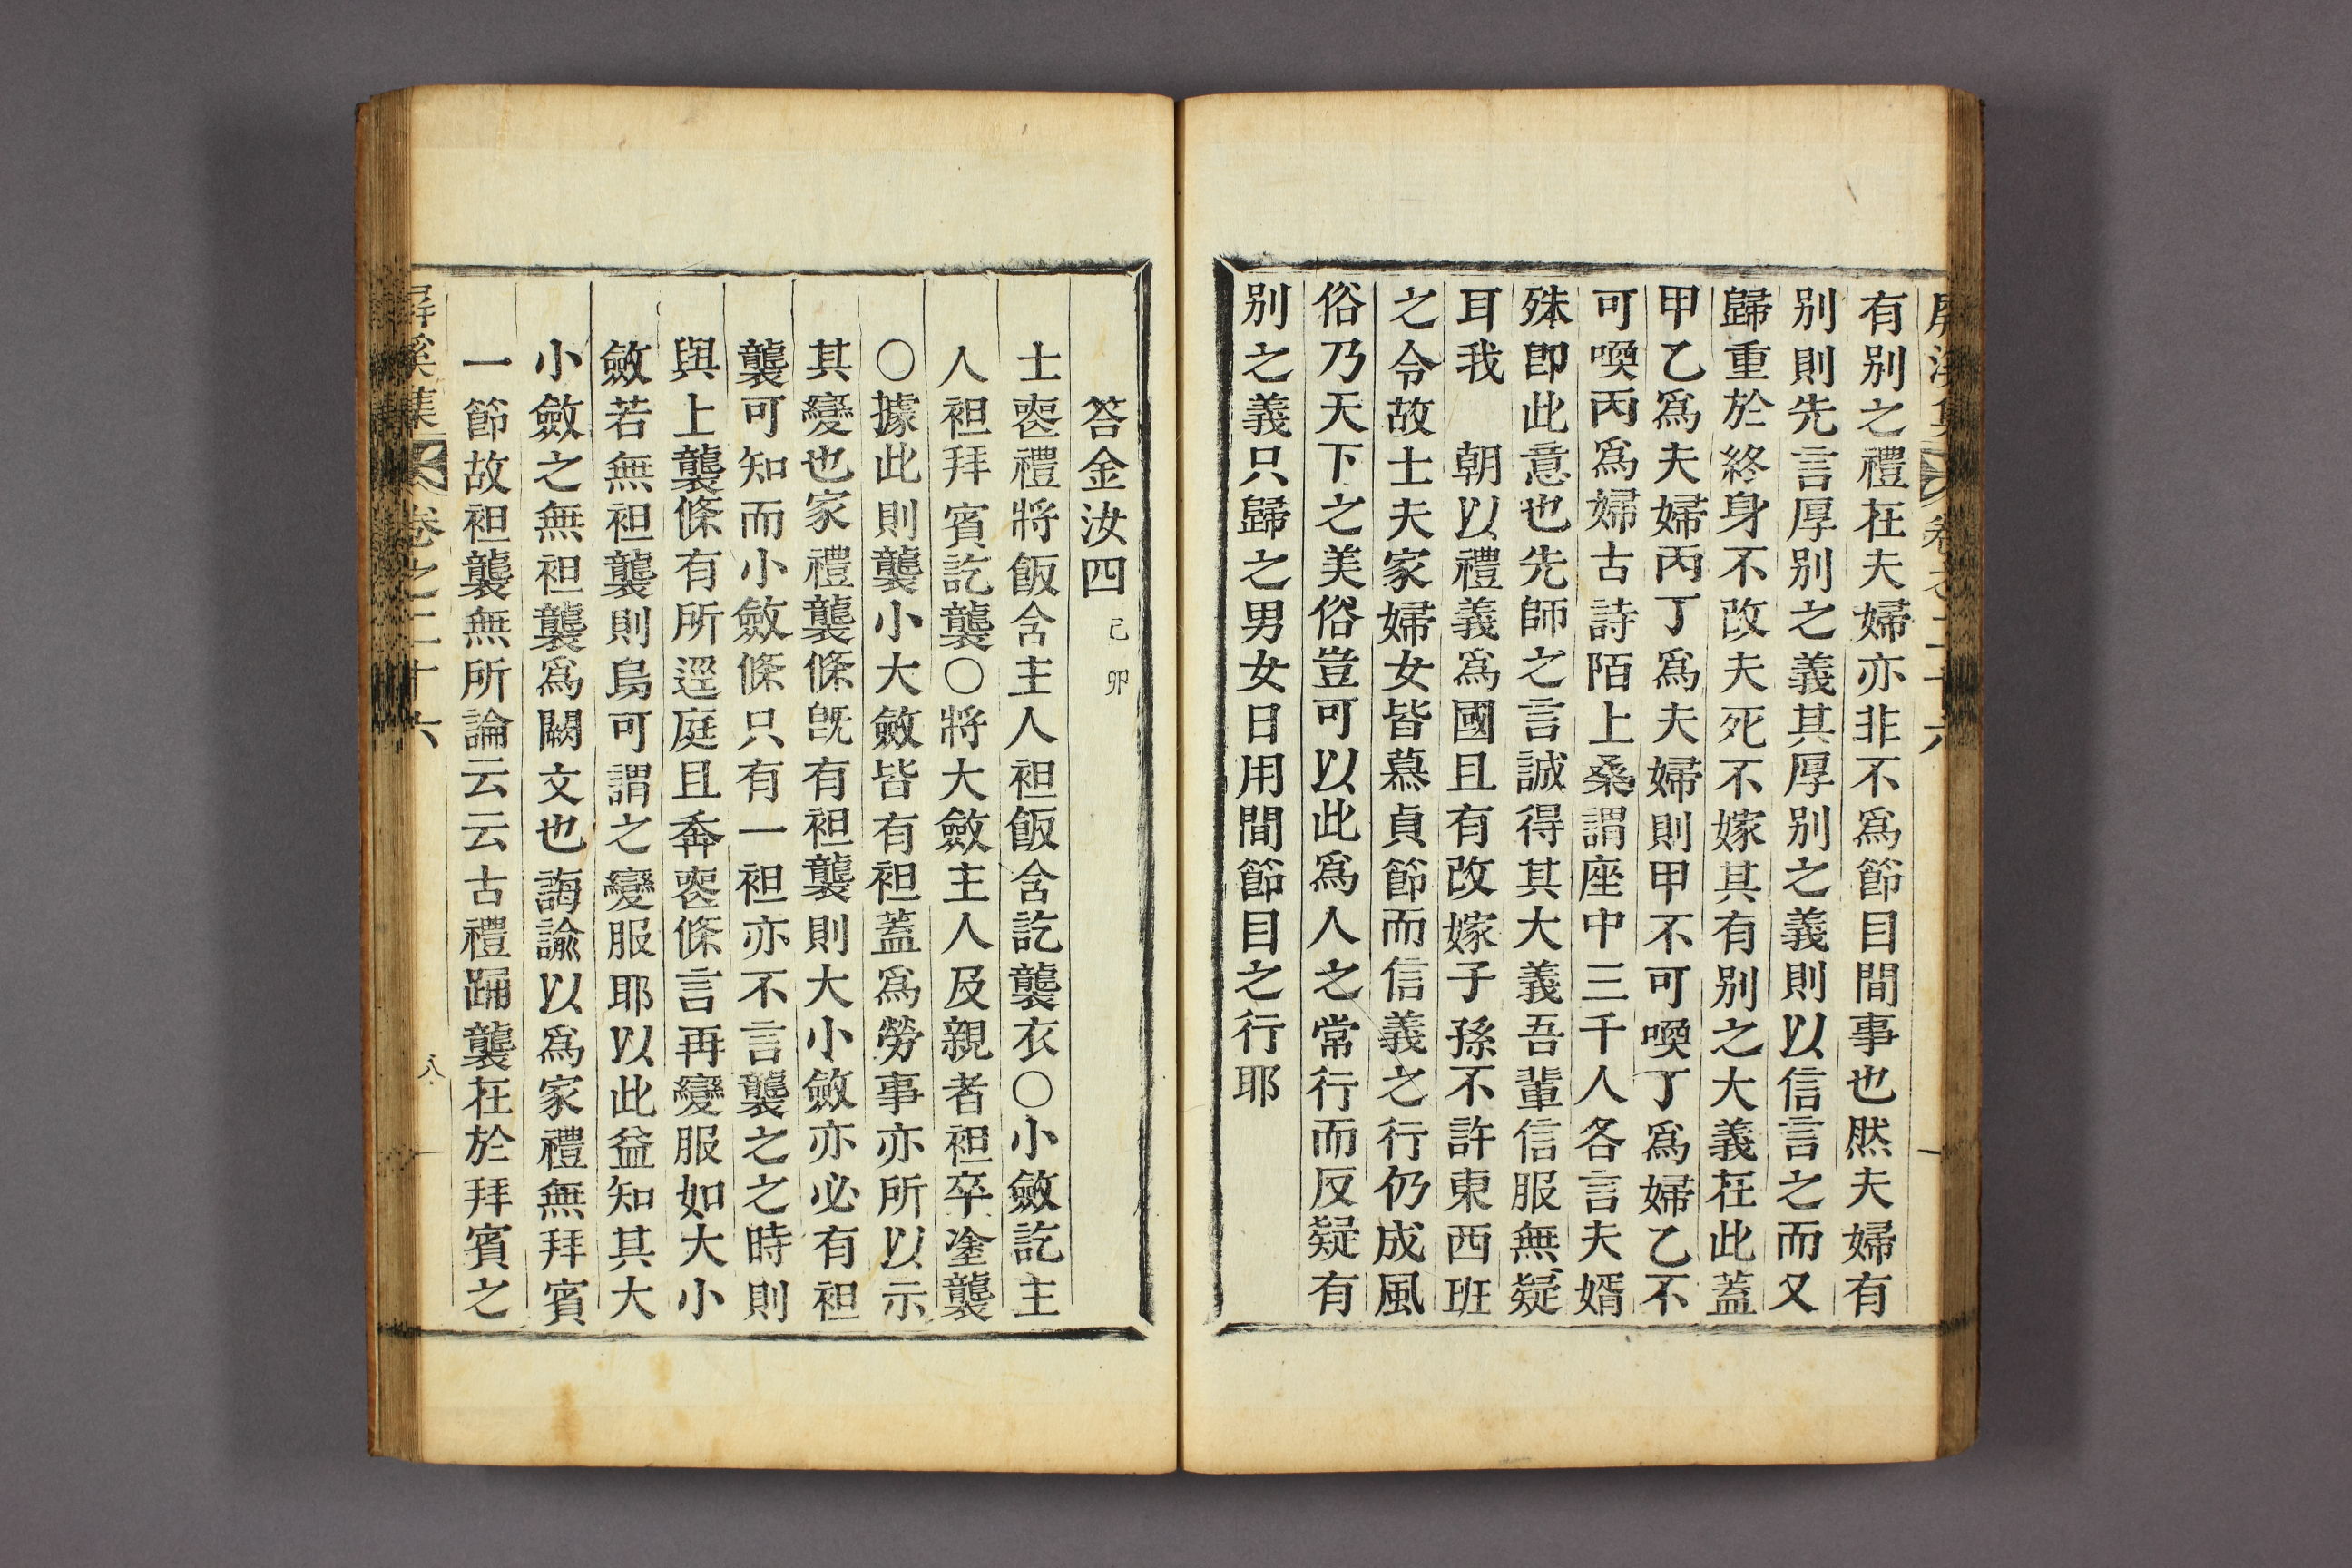 屛溪集 卷之二十六
有别之禮在夫婦亦非不爲節目間事也然夫婦有
别則先言厚别之義其厚别之義則以信言之而又
歸重於終身不改夫死不嫁其有别之大義在此蓋
甲乙爲夫婦丙丁爲夫婦則甲不可喚丁爲婦乙不
可喚丙爲婦古詩陌上桑謂座中三千人各言夫婿
殊卽此意也先師之言誠得其大義吾輩信服無疑
耳我 朝以禮義爲國且有改嫁子孫不許東西班
之令故士夫家婦女皆慕貞節而信義之行仍成風
俗乃天下之美俗豈可以此爲人之常行而反疑有
别之義只歸之男女日用間節目之行耶
答金汝四 己卯
士喪禮將飯含主人袒飯含訖襲衣○小斂訖主
人袒拜賓訖襲○將大斂主人及親者袒卒塗襲
○據此則襲小大斂皆有袒蓋爲勞事亦所以示
其變也家禮襲條旣有袒襲則大小斂亦必有袒
襲可知而小斂條只有一袒亦不言襲之之時則
與上襲條有所逕庭且奔喪條言再變服如大小
斂若無袒襲則烏可謂之變服耶以此益知其大
小斂之無袒襲爲闕文也誨諭以爲家禮無拜賓
一節故袒襲無所論云云古禮踊襲在於拜賓之
屛溪集 卷之二十六 八